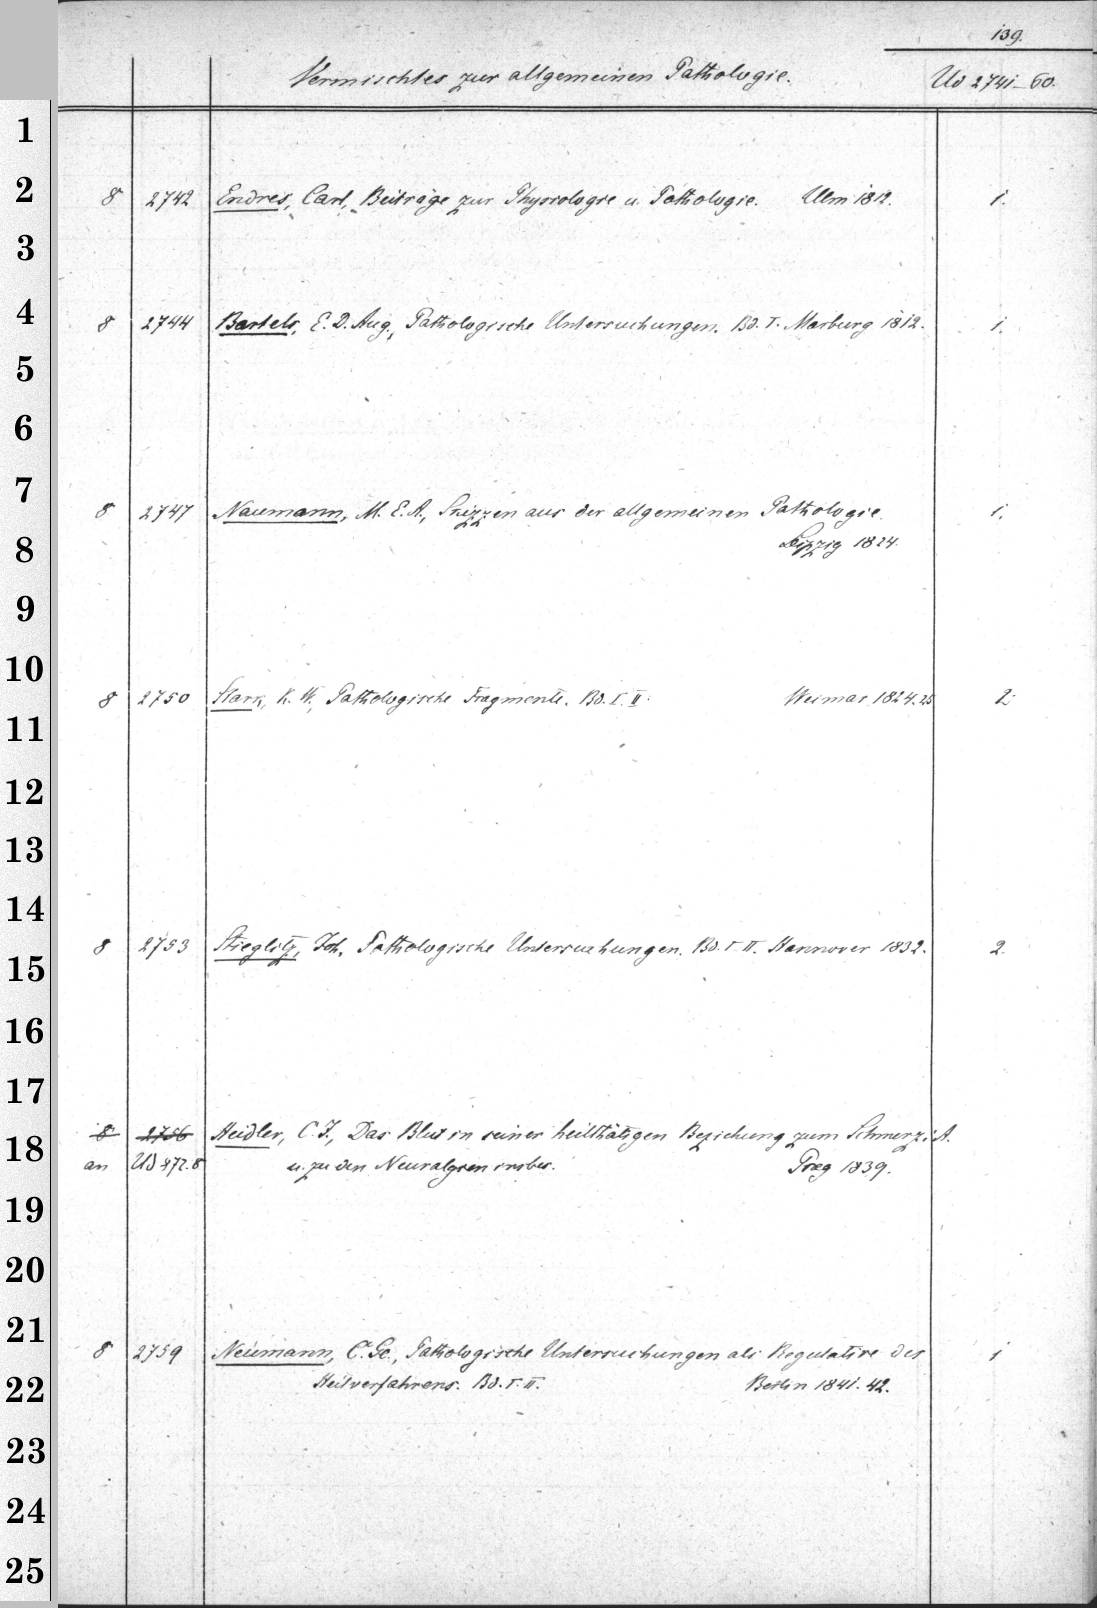 139.
Vermischtes zur allgemeinen Pathologie. Ud 2741-60.
1
2 8 2742 Endres, Carl, Beiträge zur Physiologie u. Pathologie. Ulm 1812. 1.
3
4 8 2744 Bartels, E. D. Aug., Pathologische Untersuchungen. Bd. I. Marburg 1812. 1.
5
6
7 8 2747 Naumann, M. E. A., Skizzen aus der allgemeinen Pathologie. 1.
8 Leipzig 1824.
9
10 8 2750 Stark, K. W., Pathologische Fragmente. Bd. I. II. Weimar 1824.25 2
11
12
13
14
15 8 2753 Stieglitz, Joh., Pathologische Untersuchungen. Bd. I. II. Hannover 1832. 2.
16
17
18 8 2756 Heidler, C. J., Das Blut in seiner heilthätigen Beziehung zum Schmerz i. A.
an Ud 472.8 u. zu den Neuralgien insbes. Prag 1839.
19
20
21 8 2759 Neumann, C. Ge., Pathologische Untersuchungen als Regulative des 1
22 Heilverfahrens. Bd. I. II. Berlin 1841. 42.
23
24
25